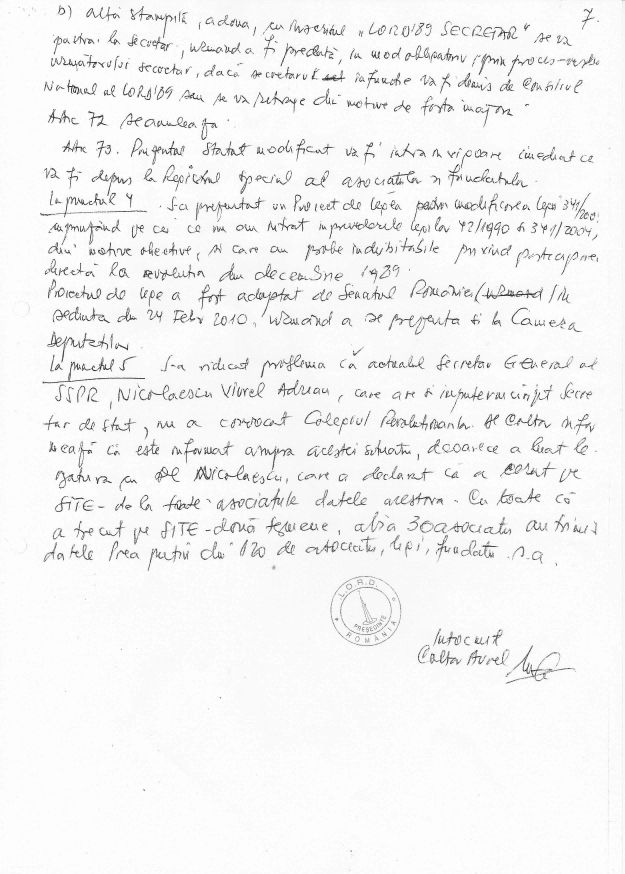 7.
b) altă ștampilă, a doua, cu însemnul „LORD'89 SECRETAR" se va
păstra la secretar, urmând a fi predată, în mod obligatoriu, prin proces-verbal
următorului secretar, dacă secretarul în funcție va fi demis de Consiliul
Național al LORD'89 sau se va retrage din motive de forță majoră
Art. 72 se anulează.
Art. 73. Prezentul Statut modificat va fi intra în vigoare imediat ce
va fi depus la Registrul special al asociațiilor și fundațiilor.
La punctul 4 S-a prezentat un Proiect de lege pentru modificarea legii 341/200
cuprinzând pe cei ce nu au intrat în prevederile legilor 42/1990 și 341/2004,
din motive obiective, și care au probe indubitabile privind participarea
directă la revoluția din decembrie 1989.
Proiectul de lege a fost adoptat de Senatul României / în
ședința din 24 Febr 2010, urmând a se prezenta și la Camera
Deputaților.
La punctul 5 S-a ridicat problema că actualul Secretar General al
SSPR, Nicolaescu Viorel Adrian, care are și împuterniciri Secre
tar de Stat, nu a convocat Colegiul Revoluționarilor. Dl Coltor infor
mează că este informat asupra acestei situații, deoarece a luat le
gătura cu Dl Nicolaescu, care a declarat că a cerut pe
SITE- de la toate asociațiile datele acestora. Cu toate că
a trecut pe SITE- două termene, abia 30 asociații au trimis
datele Prea puțin din 120 de asociații, ligi, fundații ș.a.
L.O.R.D.
PREȘEDINTE
ROMÂNIA
Întocmit
Coltor Aurel